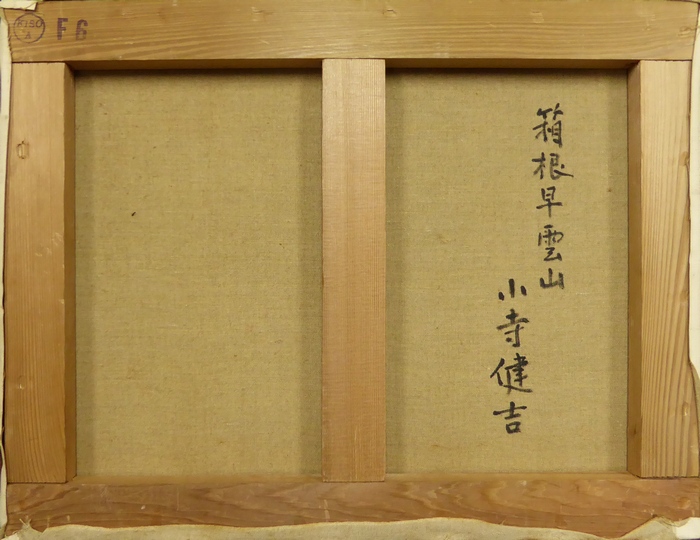 KISO
A
F6
箱根早雲山
小寺健吉